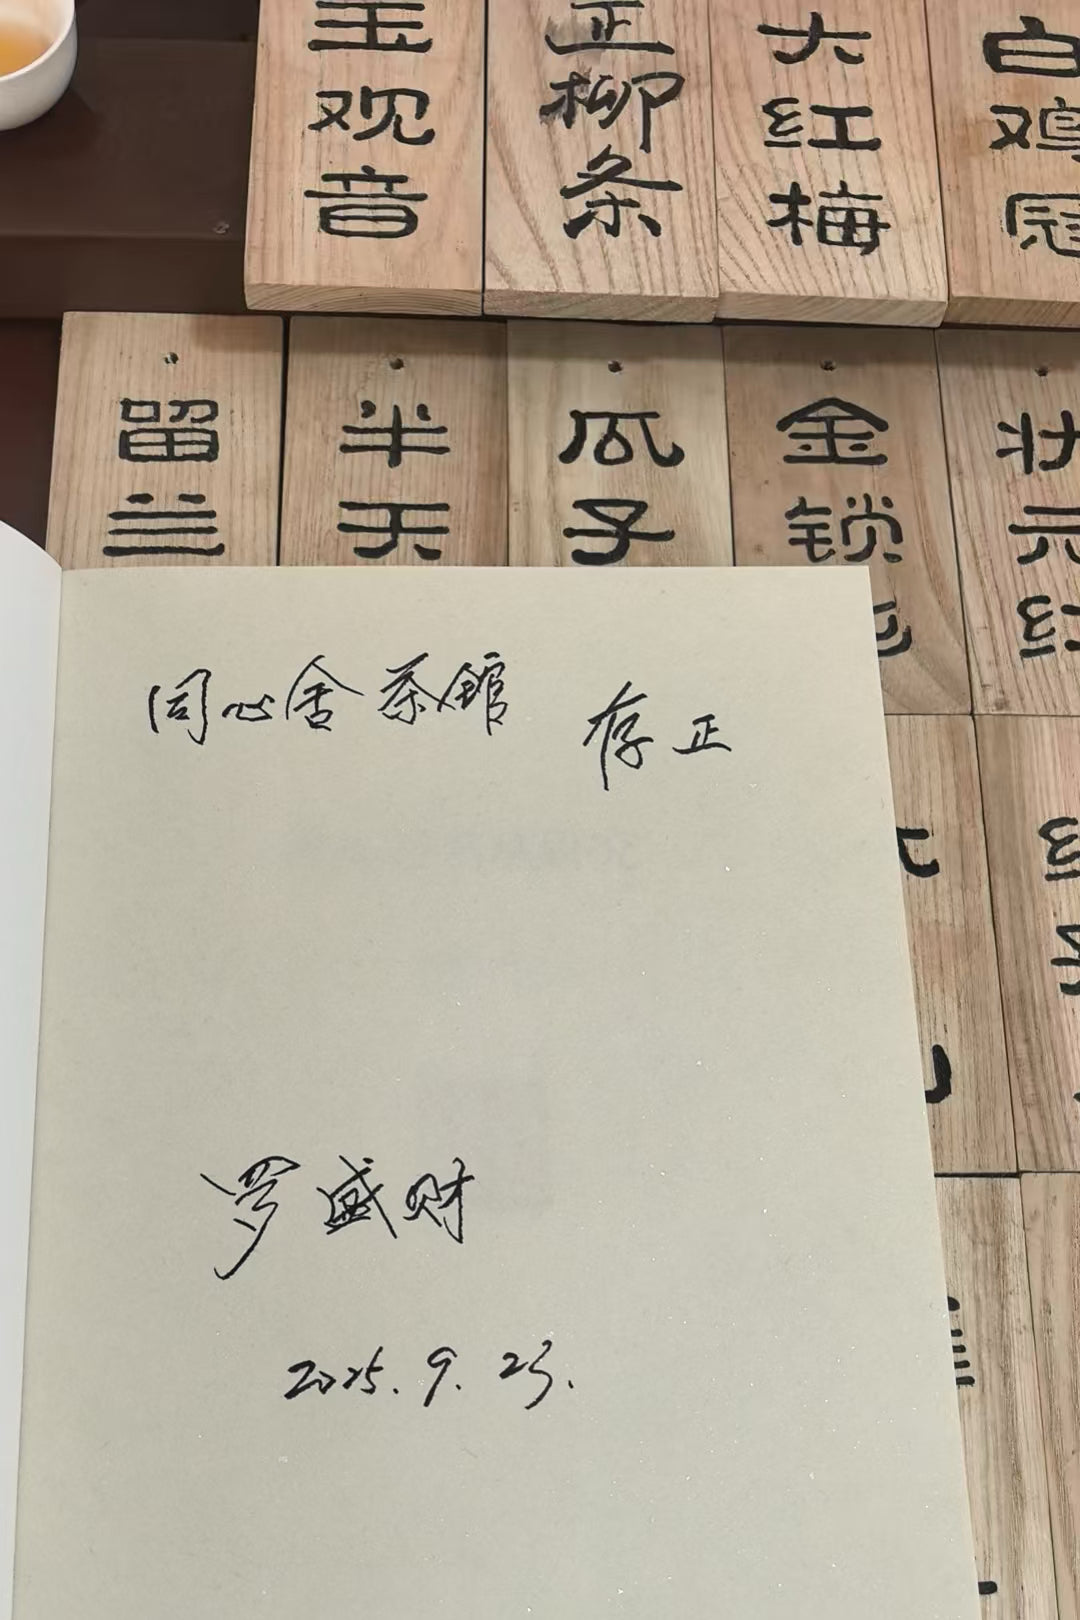 玉观音
正柳条
大红梅
白鸡冠
留兰
半天
瓜子
金锁
状元红
同心舍茶館 存正
罗盛财
2025.9.23.